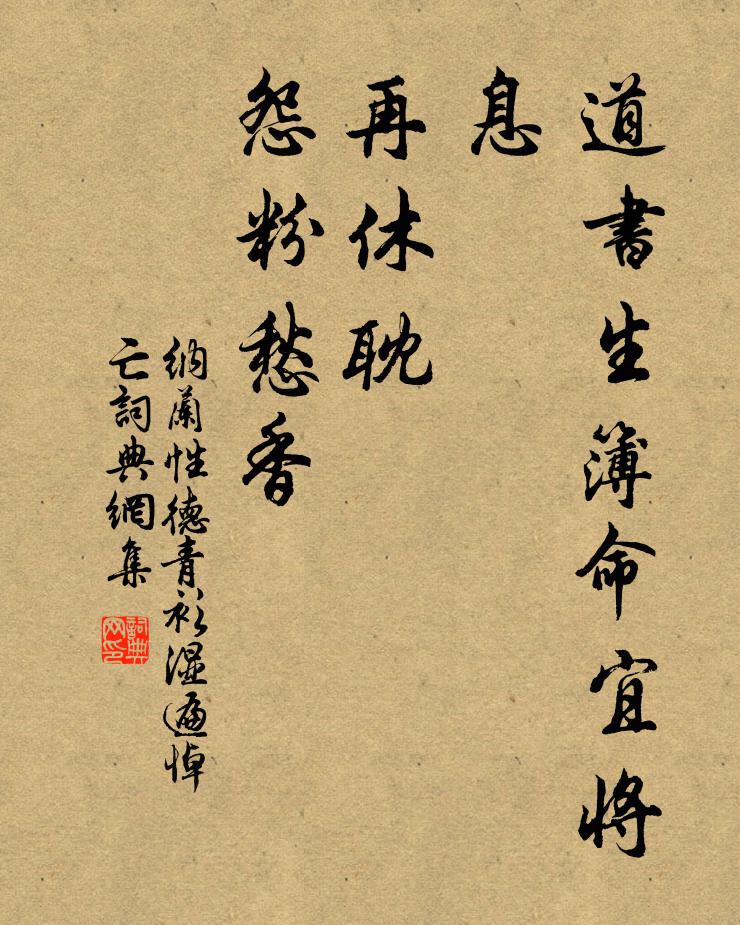 道書生簿命宜將
息
再休耽
怨粉愁香
納蘭性德青衫濕遍悼
亡詞典網集
詞典
网印